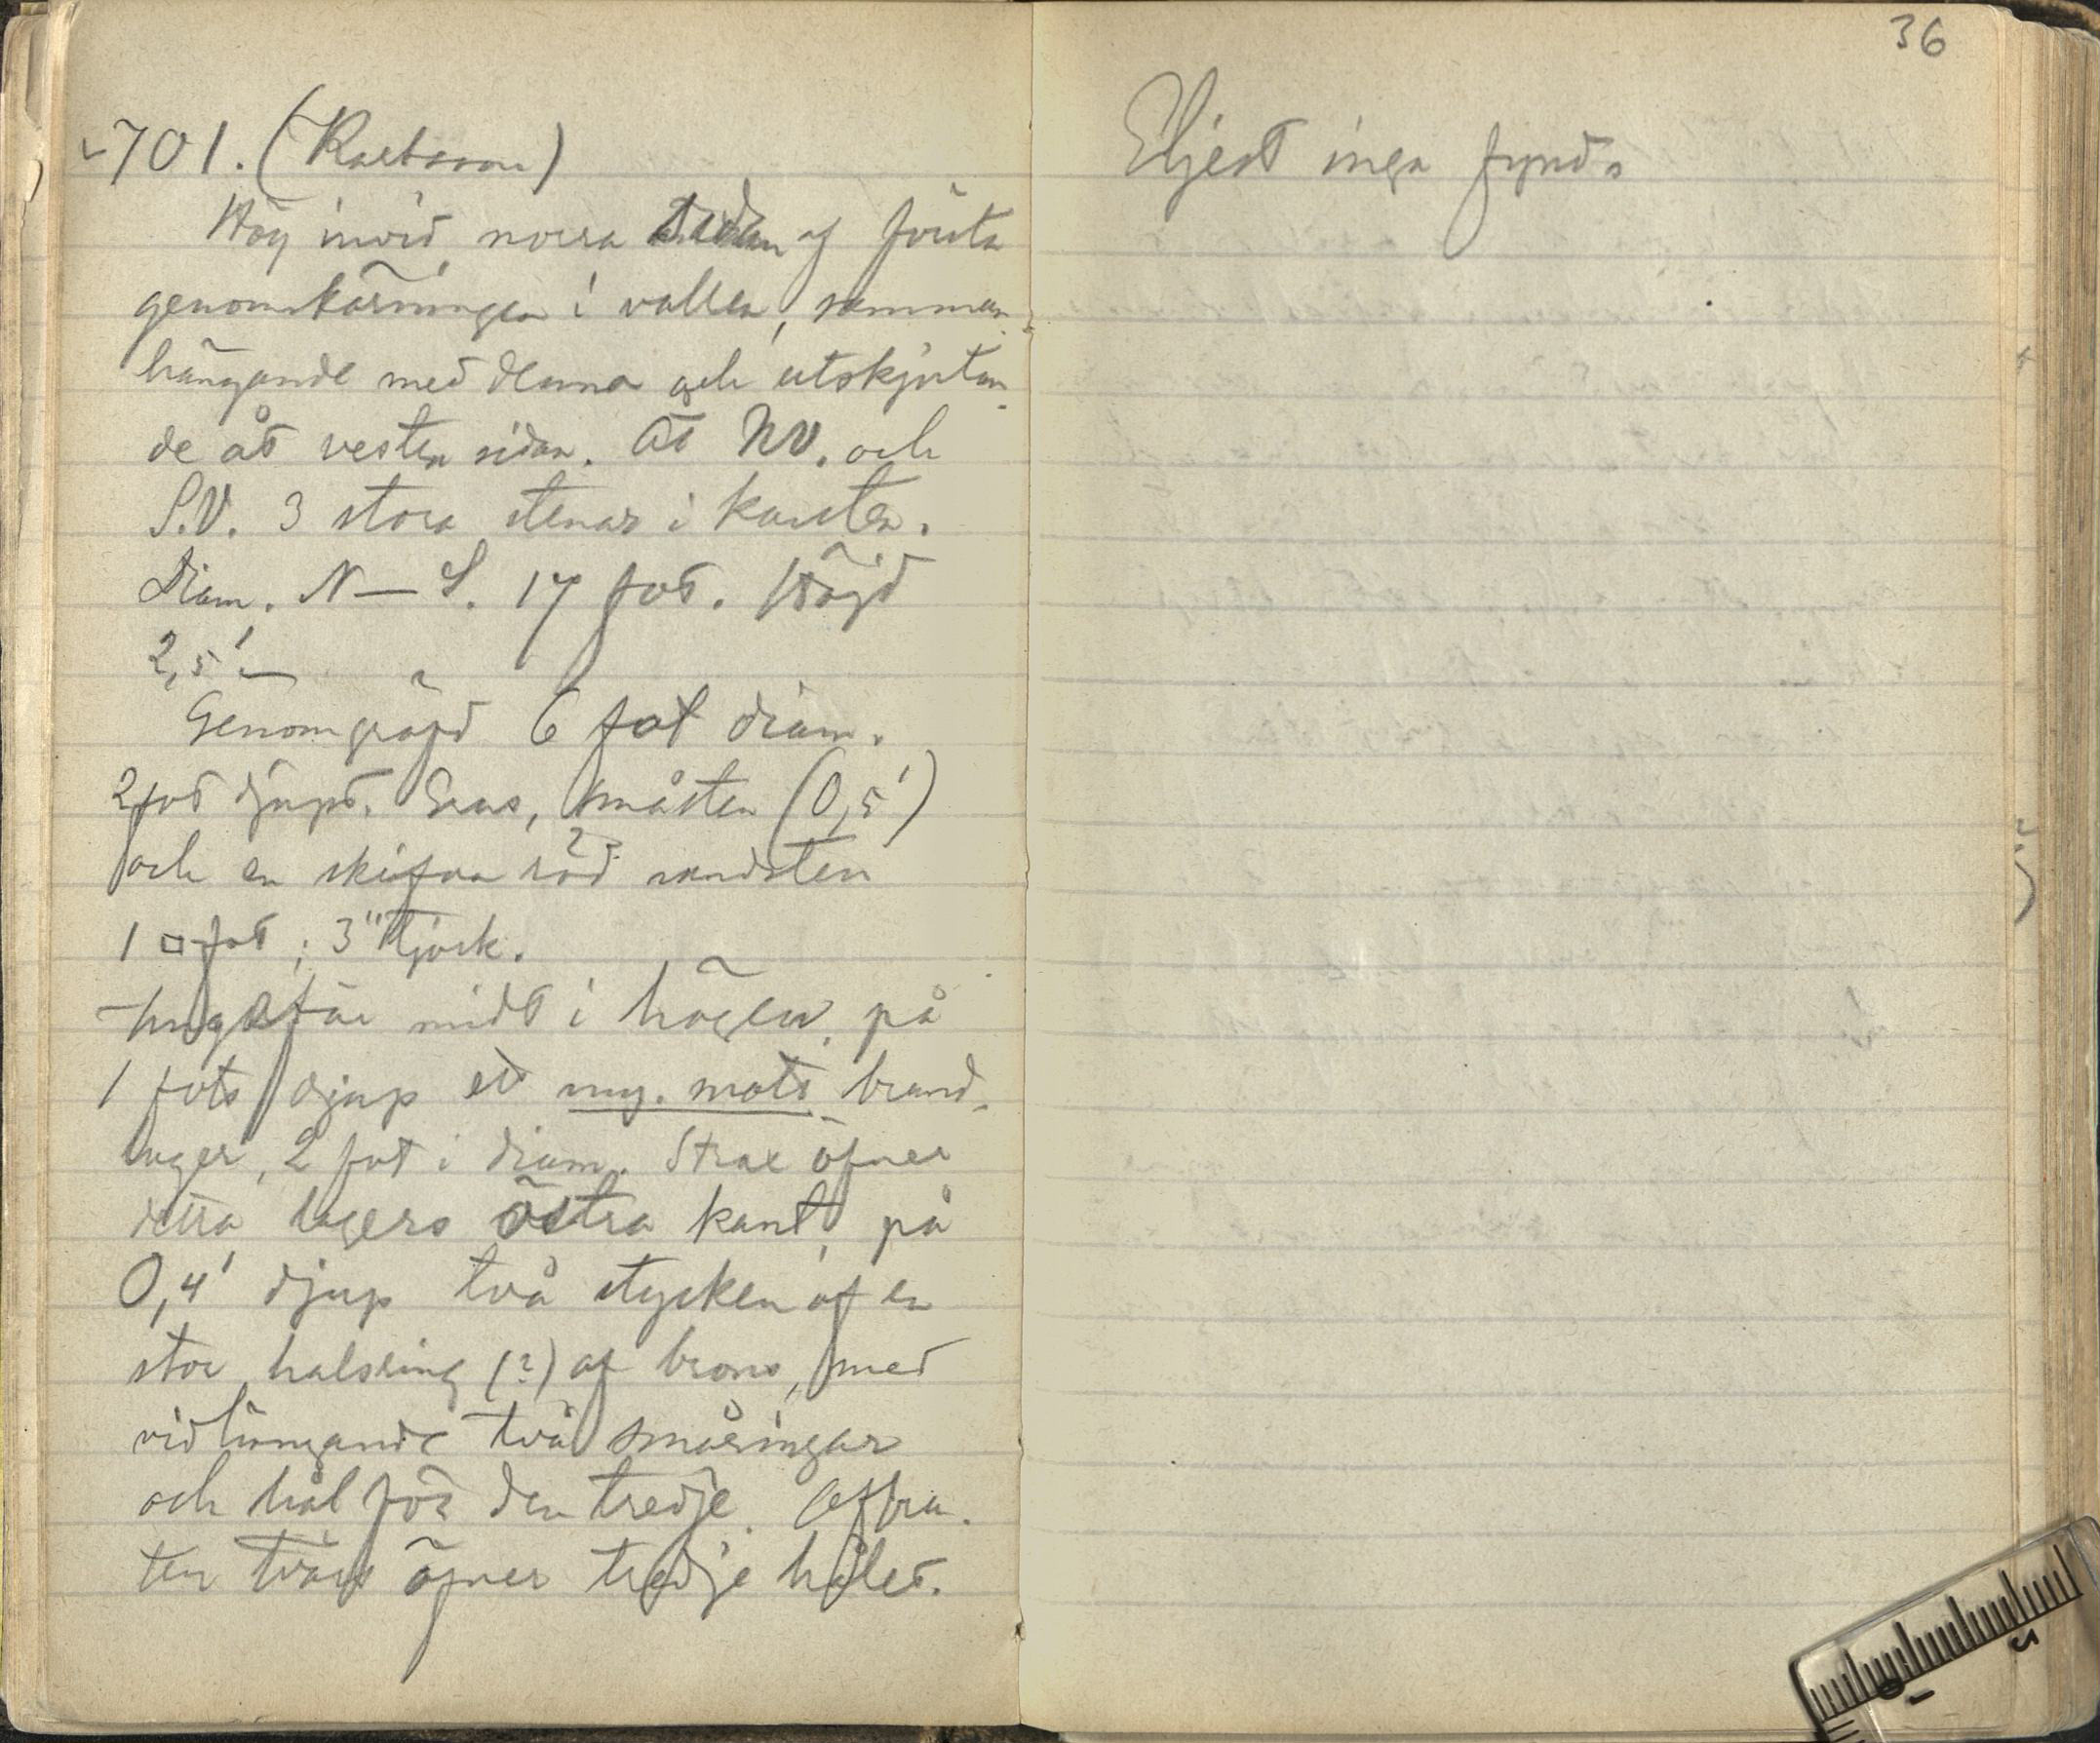 701. (Karta
Hög invid norra sidan af första
genomskärningen i vallen, samman-
hängande med denna och utskjutan-
de åt vestra sidan. Åt NV. och
S.V. 3 stora stenar i kanten.
Diam. N — S. 17 fot. Höjd
2,5' —
Genomgräfd 6 fot diam.
2 fot djupt. Grus, småsten (0,5')
och en skifva röd sandsten
1 □ fot; 3" tjock.
Ungefär midt i högen, på
1 fots djup ett myc. matt brand-
lager, 2 fot i diam. Strax öfver
detta lagers östra kant, på
0,4' djup två stycken af en
stor halsring (?) af brons, med
vidhängande två småringar
och hål för den tredje. Afbru-
ten tvärs öfver tredje hålet.
36
Eljest inga fynd.